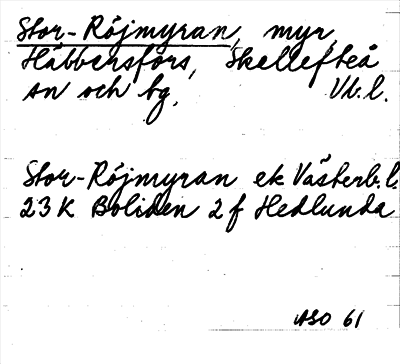 Stor-Röjmyran, myr,
Häbbersfors, Skellefteå
sn och bg, Vb.l.
Stor-Röjmyran ek Västerb.l.
23K Boliden 2f Hedlunda
ASO 61